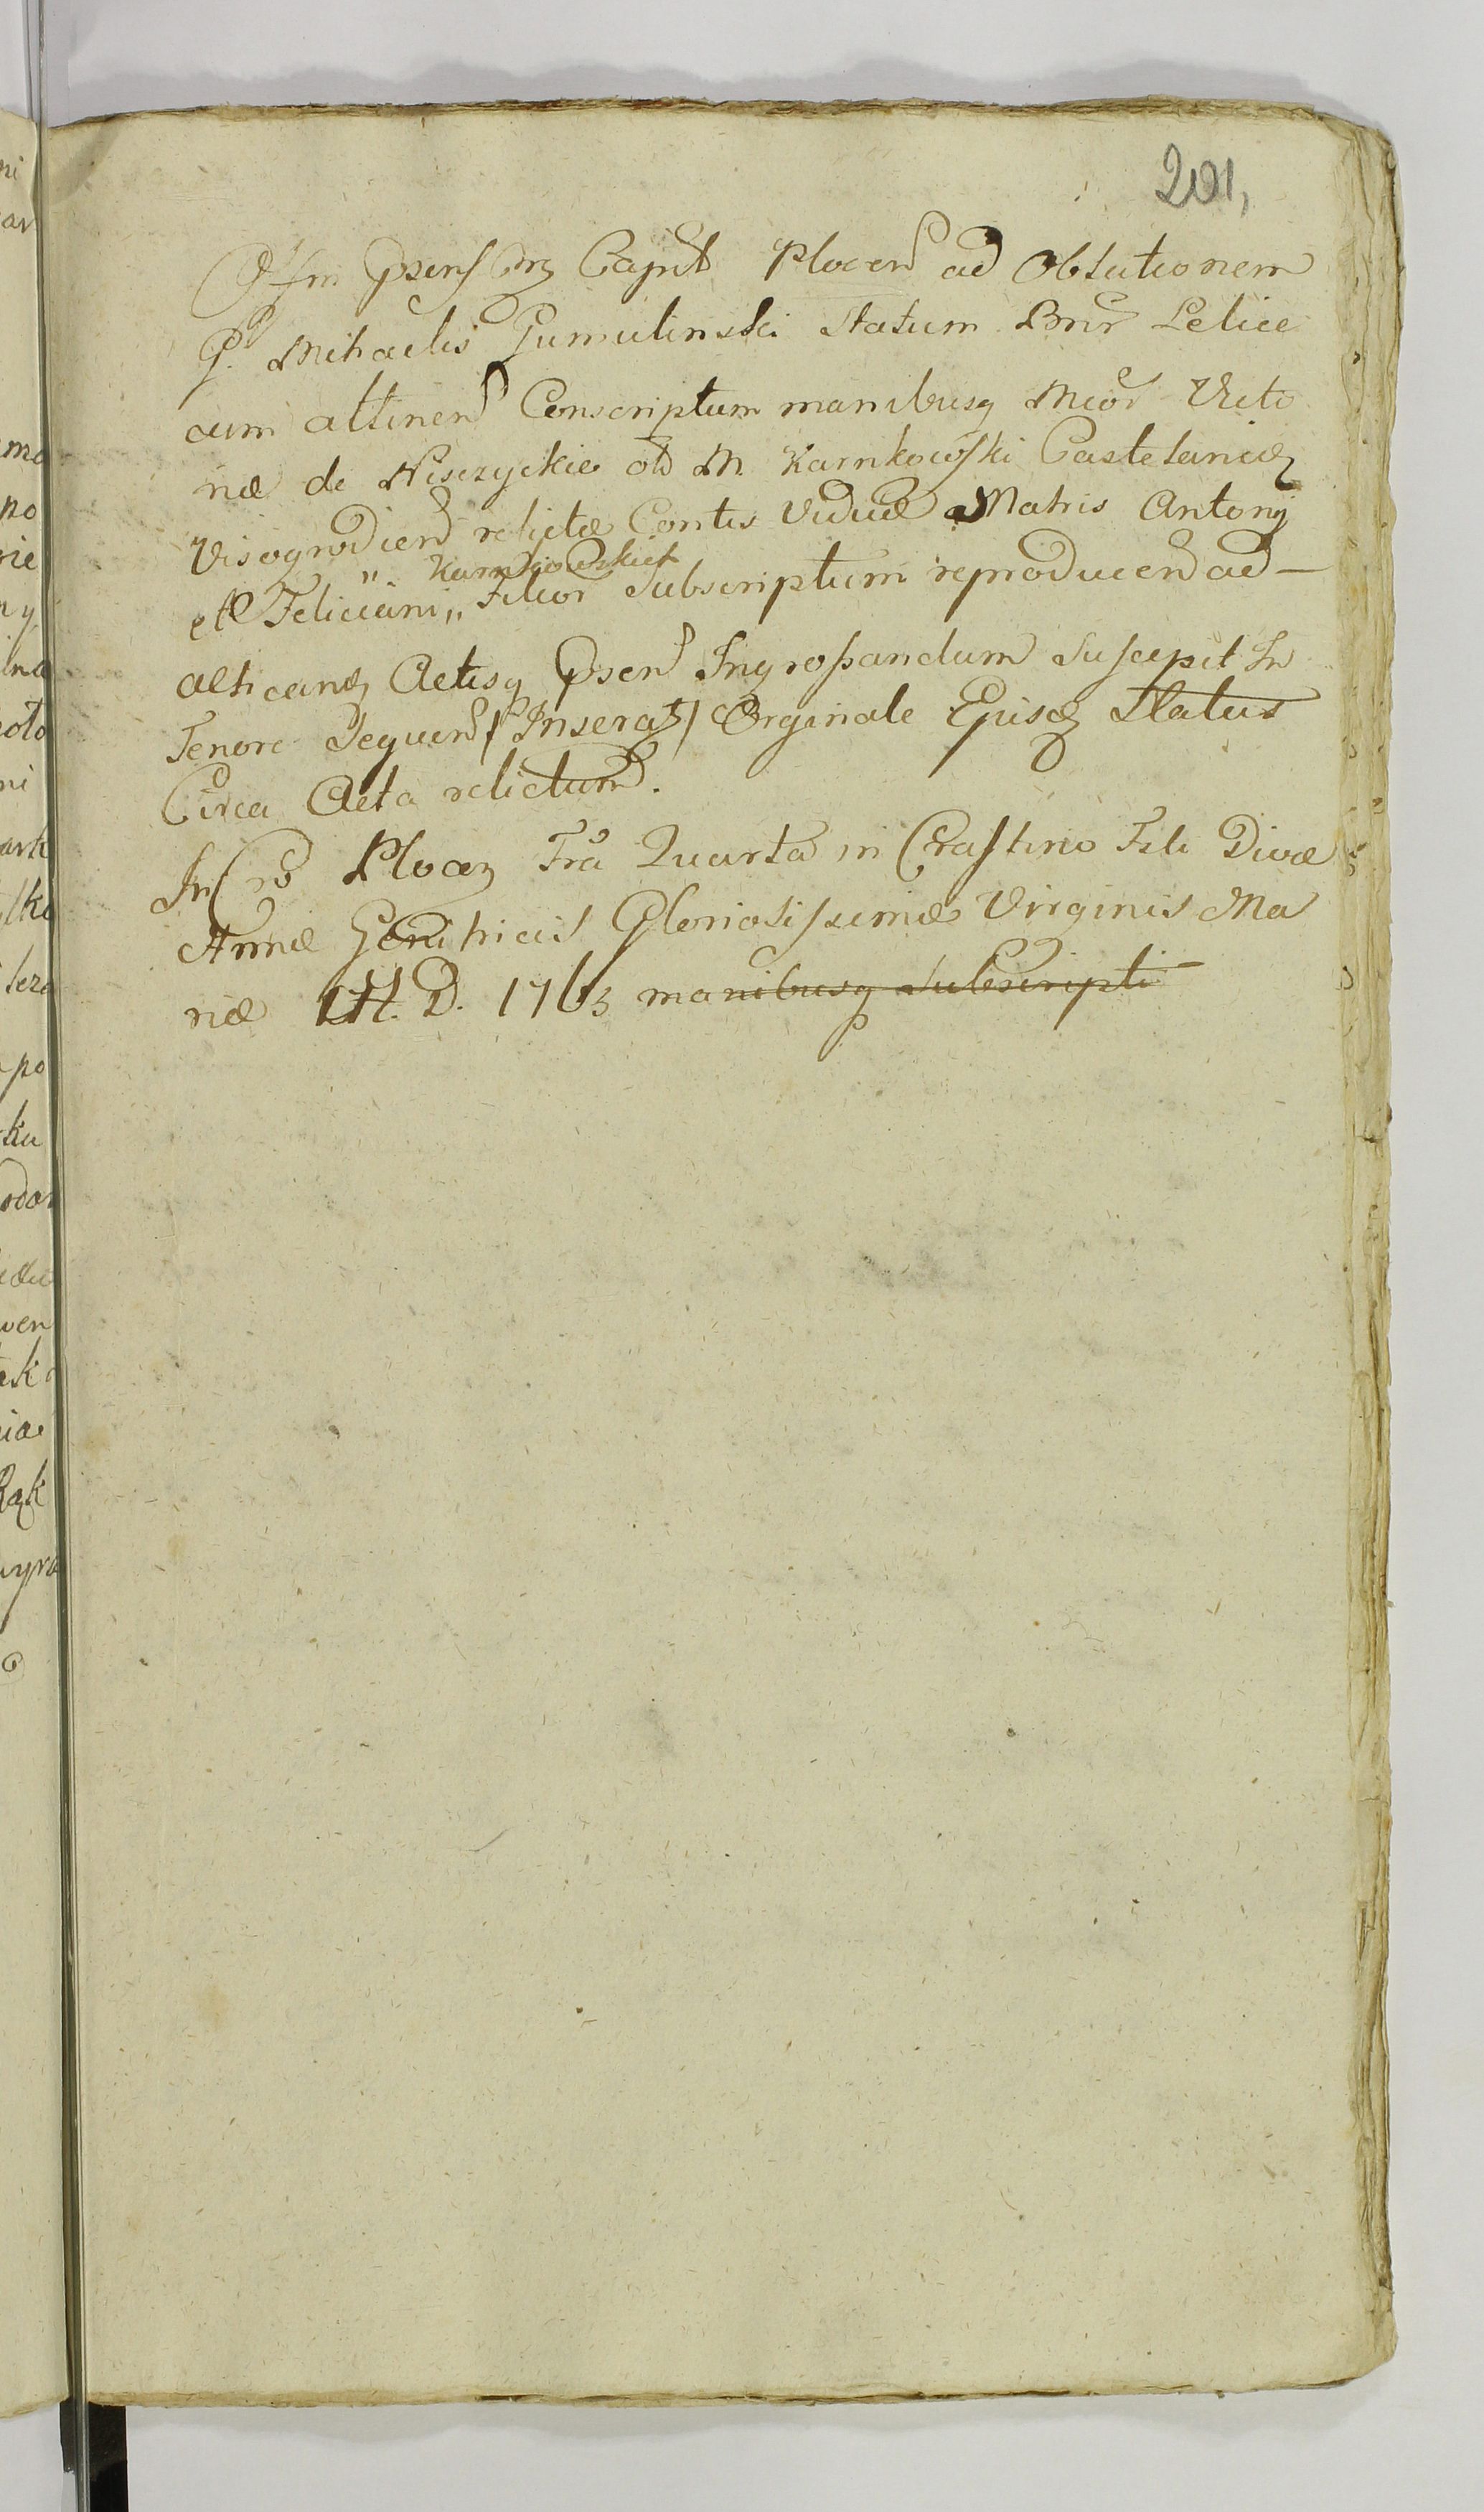 201,
Offm Psens Crz Capit Plocen ad Oblationem
G. Mihaelis Gumulinski Statum Bnr Lelice
cum attinen Conscriptum manibusq Mcor Victo
riæ de Niszyckie olo M. Karnkowski Castelanidz
Visogrodien relictæ Contis Viduæ Matris Antonij
et Feliciani „ Karnkowskich Filior Subscriptum reproducen ad
affican Actisq Psen Ingrossandum Suscepit In
Tenore Sequen /Inserat/ Orginale Ejusdz Status
Circa Acta relictum.
In Cro Plocen Fra Quarta in Crastino Fsti Divæ
Annæ Genitricis Gloriosissimæ Virginis Ma
riæ A. D. 1763 manibusq Subscripti